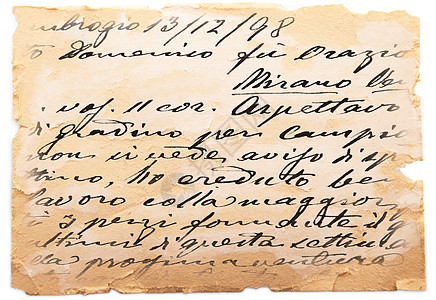 mbrogio 13/12/98
to Domenico fù Orazio
Mirano Ve
. vos. 11 cor. Aspettavo
di gradino per campio
non si vede avviso di sp
tino, ho creduto be
lavoro colla maggior
i 3 pezzi formante il g
ultimi di questa settima
da prossima ventura